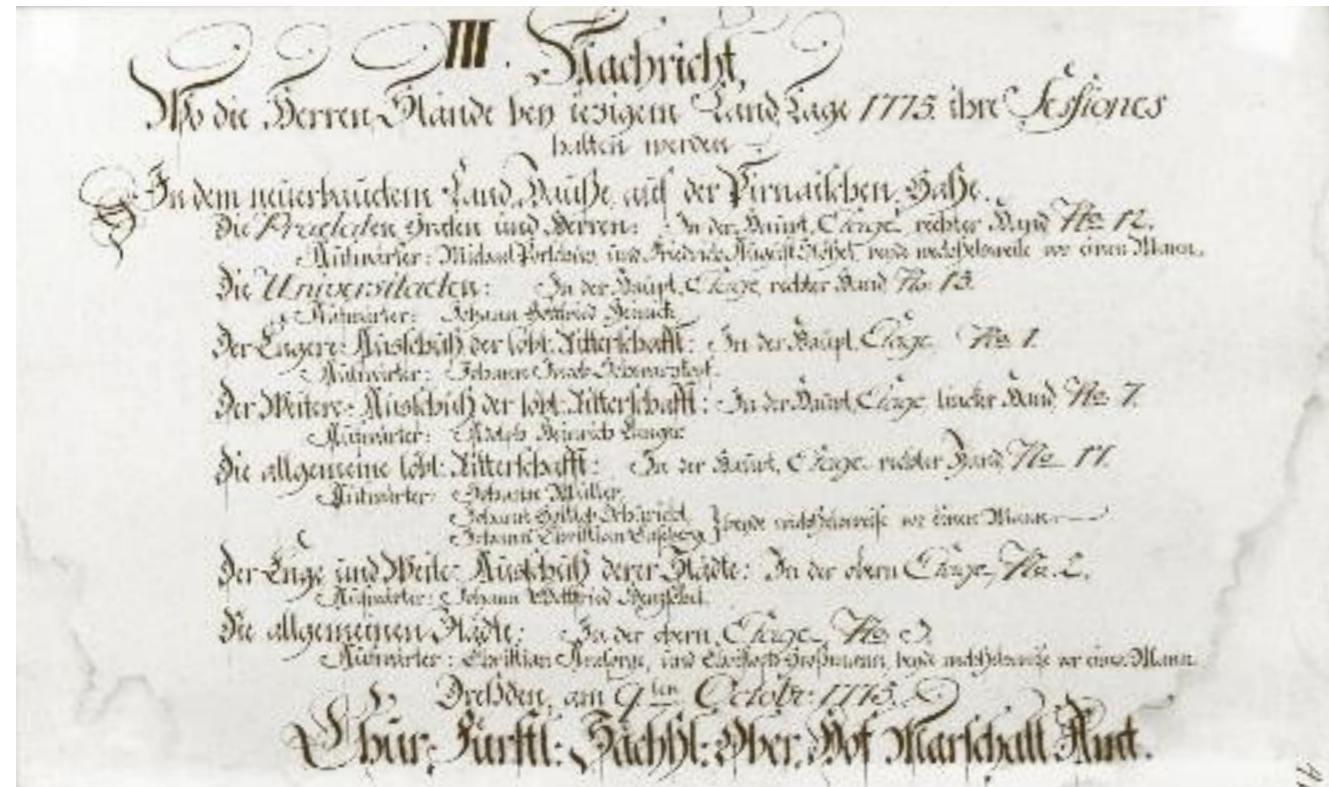 III. Nachricht,
Wo die Herren Stände bey ietzigem Land Tage 1775. ihre Sessiones
halten werden
In dem neuerbauetem Land Hauße auf der Pirnaischen Gaße.
Die Praelaten Grafen und Herren: In der Haupt Etage rechter Hand No. 12.
Aufwärter: Michael und Friedrich August beyde wechselsweise vor einen Mann.
Die Universitaeten: In der Haupt Etage rechter Hand No. 13.
Aufwärter: Johann Gottfried
Der Engere Ausschuß der löbl. Ritterschafft: In der Haupt Etage No. 1.
Aufwärter: Johann Jacob
Der Weitere Ausschuß der löbl. Ritterschafft: In der Haupt Etage lincker Hand No. 7.
Aufwärter: Adolph Heinrich
Die allgemeine löbl. Ritterschafft: In der Haupt Etage rechter Hand No.
Aufwärter: Johann Müller
Johann Gottlob
Johann Christian beyde wechselsweise vor einen Mann
Der Enge und Weite Ausschuß derer Städte: In der obern Etage No. 2.
Aufwärter: Johann Gottfried
Die allgemeinen Städte: In der obern Etage No.
Aufwärter: Christian und Christoph Großmann, beyde wechselsweise vor einen Mann
Dreßden, am 9ten Octobr 1775.
Chur-Fürstl: Sächßl: Ober Hof Marschall Amt.